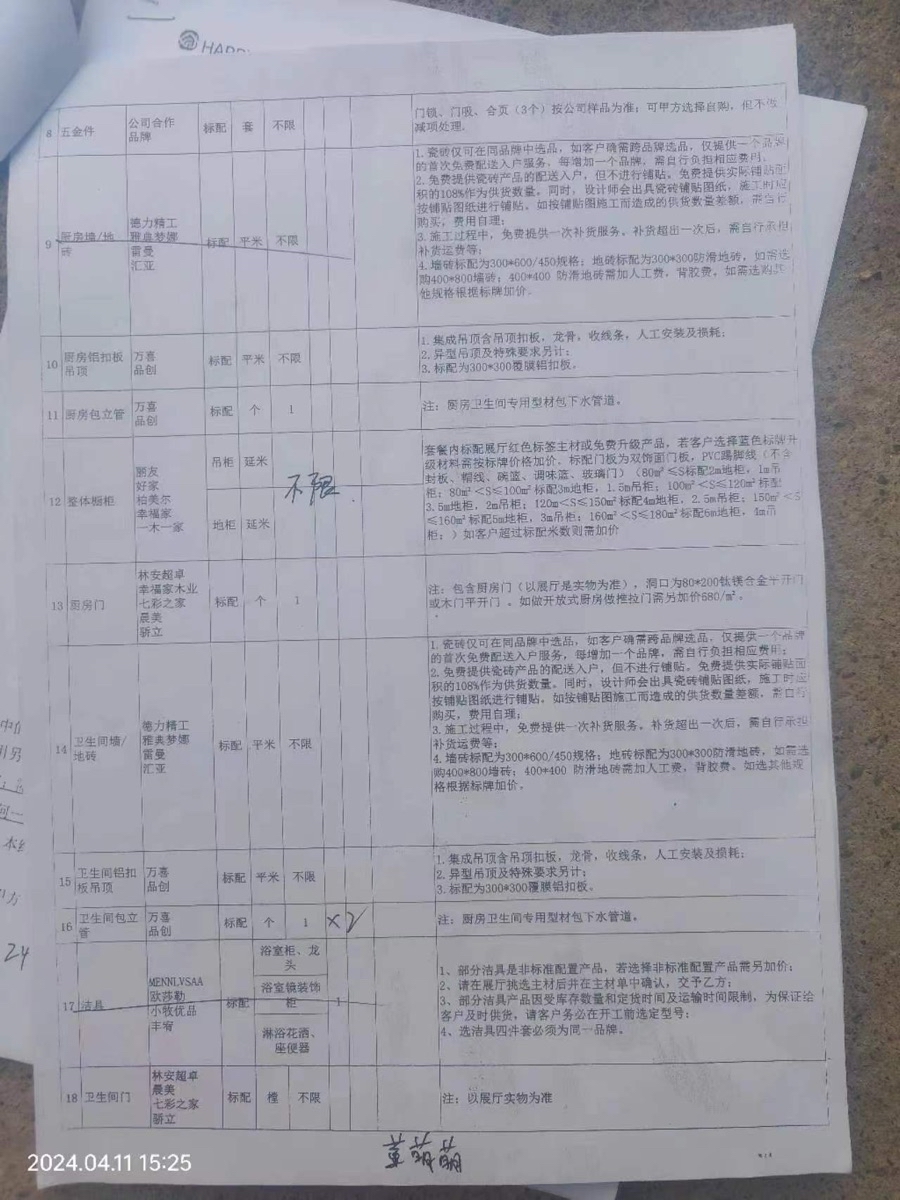 HAPP
8 五金件 公司合作 品牌 标配 套 不限
门锁、门吸、合页(3个)按公司样品为准;可甲方选择自购,但不做
减项处理.
9 厨房墙/地 砖
德力精工
雅典梦娜
雷曼
汇亚
标配 平米 不限
1.瓷砖仅可在同品牌中选品,如客户确需跨品牌选品,仅提供一个品牌
的首次免费配送入户服务,每增加一个品牌,需自行负担相应费用,
2.免费提供瓷砖产品的配送入户,但不进行铺贴。免费提供实际铺贴面
积的108%作为供货数量。同时,设计师会出具瓷砖铺贴图纸,施工时应
按铺贴图纸进行铺贴。如按铺贴图施工而造成的供货数量差额,需自行
购买,费用自理;
3.施工过程中,免费提供一次补货服务。补货超出一次后,需自行承担
补货运费等;
4.墙砖标配为300*600/450规格;地砖标配为300*300防滑地砖,如需选
购400*800墙砖;400*400 防滑地砖需加人工费,背胶费,如需选购其
他规格根据标牌加价。
10 厨房铝扣板 吊顶
万喜
品创
标配 平米 不限
1.集成吊顶含吊顶扣板,龙骨,收线条,人工安装及损耗;
2.异型吊顶及特殊要求另计;
3.标配为300*300覆膜铝扣板。
11 厨房包立管
万喜
品创
标配 个 1
注:厨房卫生间专用型材包下水管道。
12 整体橱柜
丽友
好家
柏美尔
幸福家
一木一家
吊柜 延米
地柜 延米
不限
套餐内标配展厅红色标签主材或免费升级产品,若客户选择蓝色标牌升
级材料需按标牌价格加价。标配门板为双饰面门板,PVC踢脚线(不含
封板、帽线、碗篮、调味篮、玻璃门)(80m²≤S标配2m地柜,1m吊
柜;80m²<S≤100m²标配3m地柜,1.5m吊柜;100m²<S≤120m²标配
3.5m地柜,2m吊柜;120m<S≤150m²标配4m地柜,2.5m吊柜;150m²<S
≤160m²标配5m地柜,3m吊柜;160m²<S≤180m²标配6m地柜,4m吊
柜;)如客户超过标配米数则需加价
13 厨房门
林安超卓
幸福家木业
七彩之家
晨美
骄立
标配 个 1
注:包含厨房门(以展厅是实物为准),洞口为80*200钛镁合金平开门
或木门平开门 。如做开放式厨房做推拉门需另加价680/m²。
14 卫生间墙/ 地砖
德力精工
雅典梦娜
雷曼
汇亚
标配 平米 不限
1.瓷砖仅可在同品牌中选品,如客户确需跨品牌选品,仅提供一个品牌
的首次免费配送入户服务,每增加一个品牌,需自行负担相应费用;
2.免费提供瓷砖产品的配送入户,但不进行铺贴。免费提供实际铺贴面
积的108%作为供货数量。同时,设计师会出具瓷砖铺贴图纸,施工时应
按铺贴图纸进行铺贴,如按铺贴图施工而造成的供货数量差额,需自行
购买,费用自理;
3.施工过程中,免费提供一次补货服务。补货超出一次后,需自行承担
补货运费等;
4.墙砖标配为300*600/450规格;地砖标配为300*300防滑地砖,如需选
购400*800墙砖;400*400 防滑地砖需加人工费,背胶费。如选其他规
格根据标牌加价。
15 卫生间铝扣 板吊顶
万喜
品创
标配 平米 不限
1.集成吊顶含吊顶扣板,龙骨,收线条,人工安装及损耗;
2.异型吊顶及特殊要求另计;
3.标配为300*300覆膜铝扣板。
16 卫生间包立 管
万喜
品创
标配 个 1 ×2
注:厨房卫生间专用型材包下水管道。
17 洁具
MENNLVSAA
欧莎勒
小牧优品
丰宥
标配
浴室柜、龙
头
浴室镜装饰
柜
淋浴花洒、
座便器
1
1、部分洁具是非标准配置产品,若选择非标准配置产品需另加价;
2、请在展厅挑选主材后并在主材单中确认,交予乙方;
3、部分洁具产品因受库存数量和定货时间及运输时间限制,为保证给
客户及时供货,请客户务必在开工前选定型号;
4、选洁具四件套必须为同一品牌。
18 卫生间门
林安超卓
晨美
七彩之家
骄立
标配 樘 不限
注:以展厅实物为准
24
董萌萌
2024.04.11 15:25